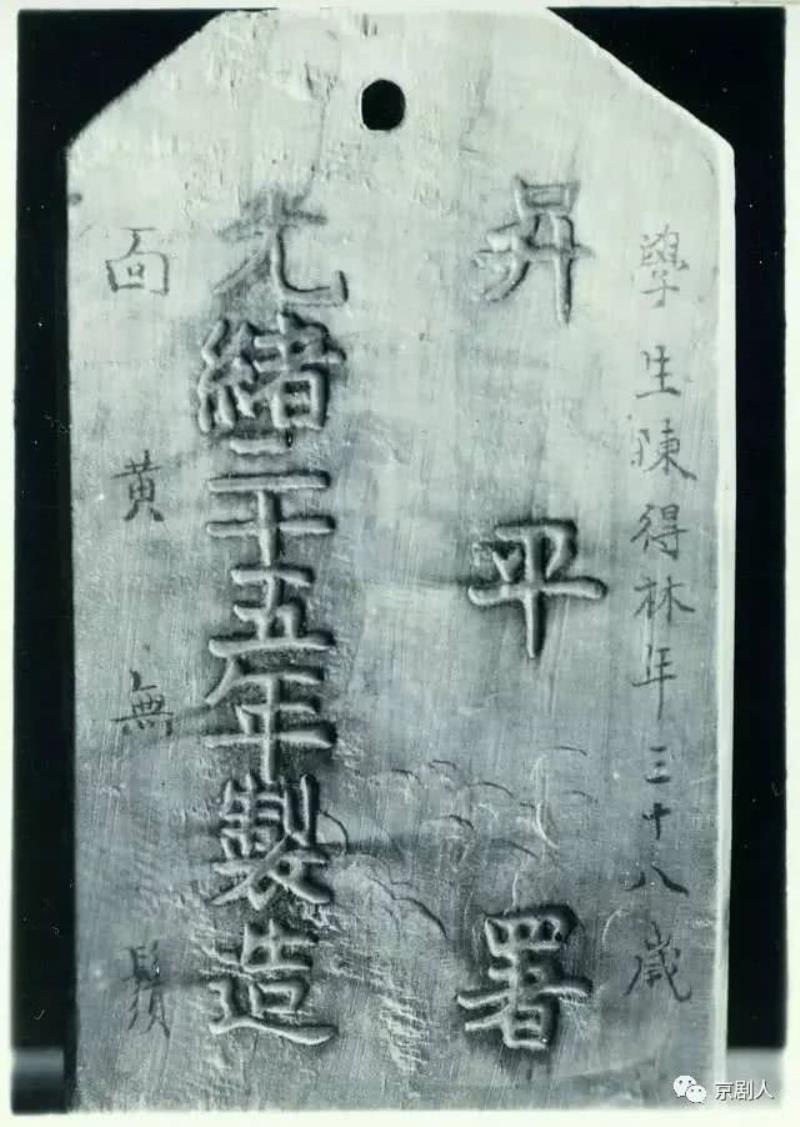 學生陳得林年三十八歲
昇平署
光緒二十五年製造
面黄無鬚
京剧人